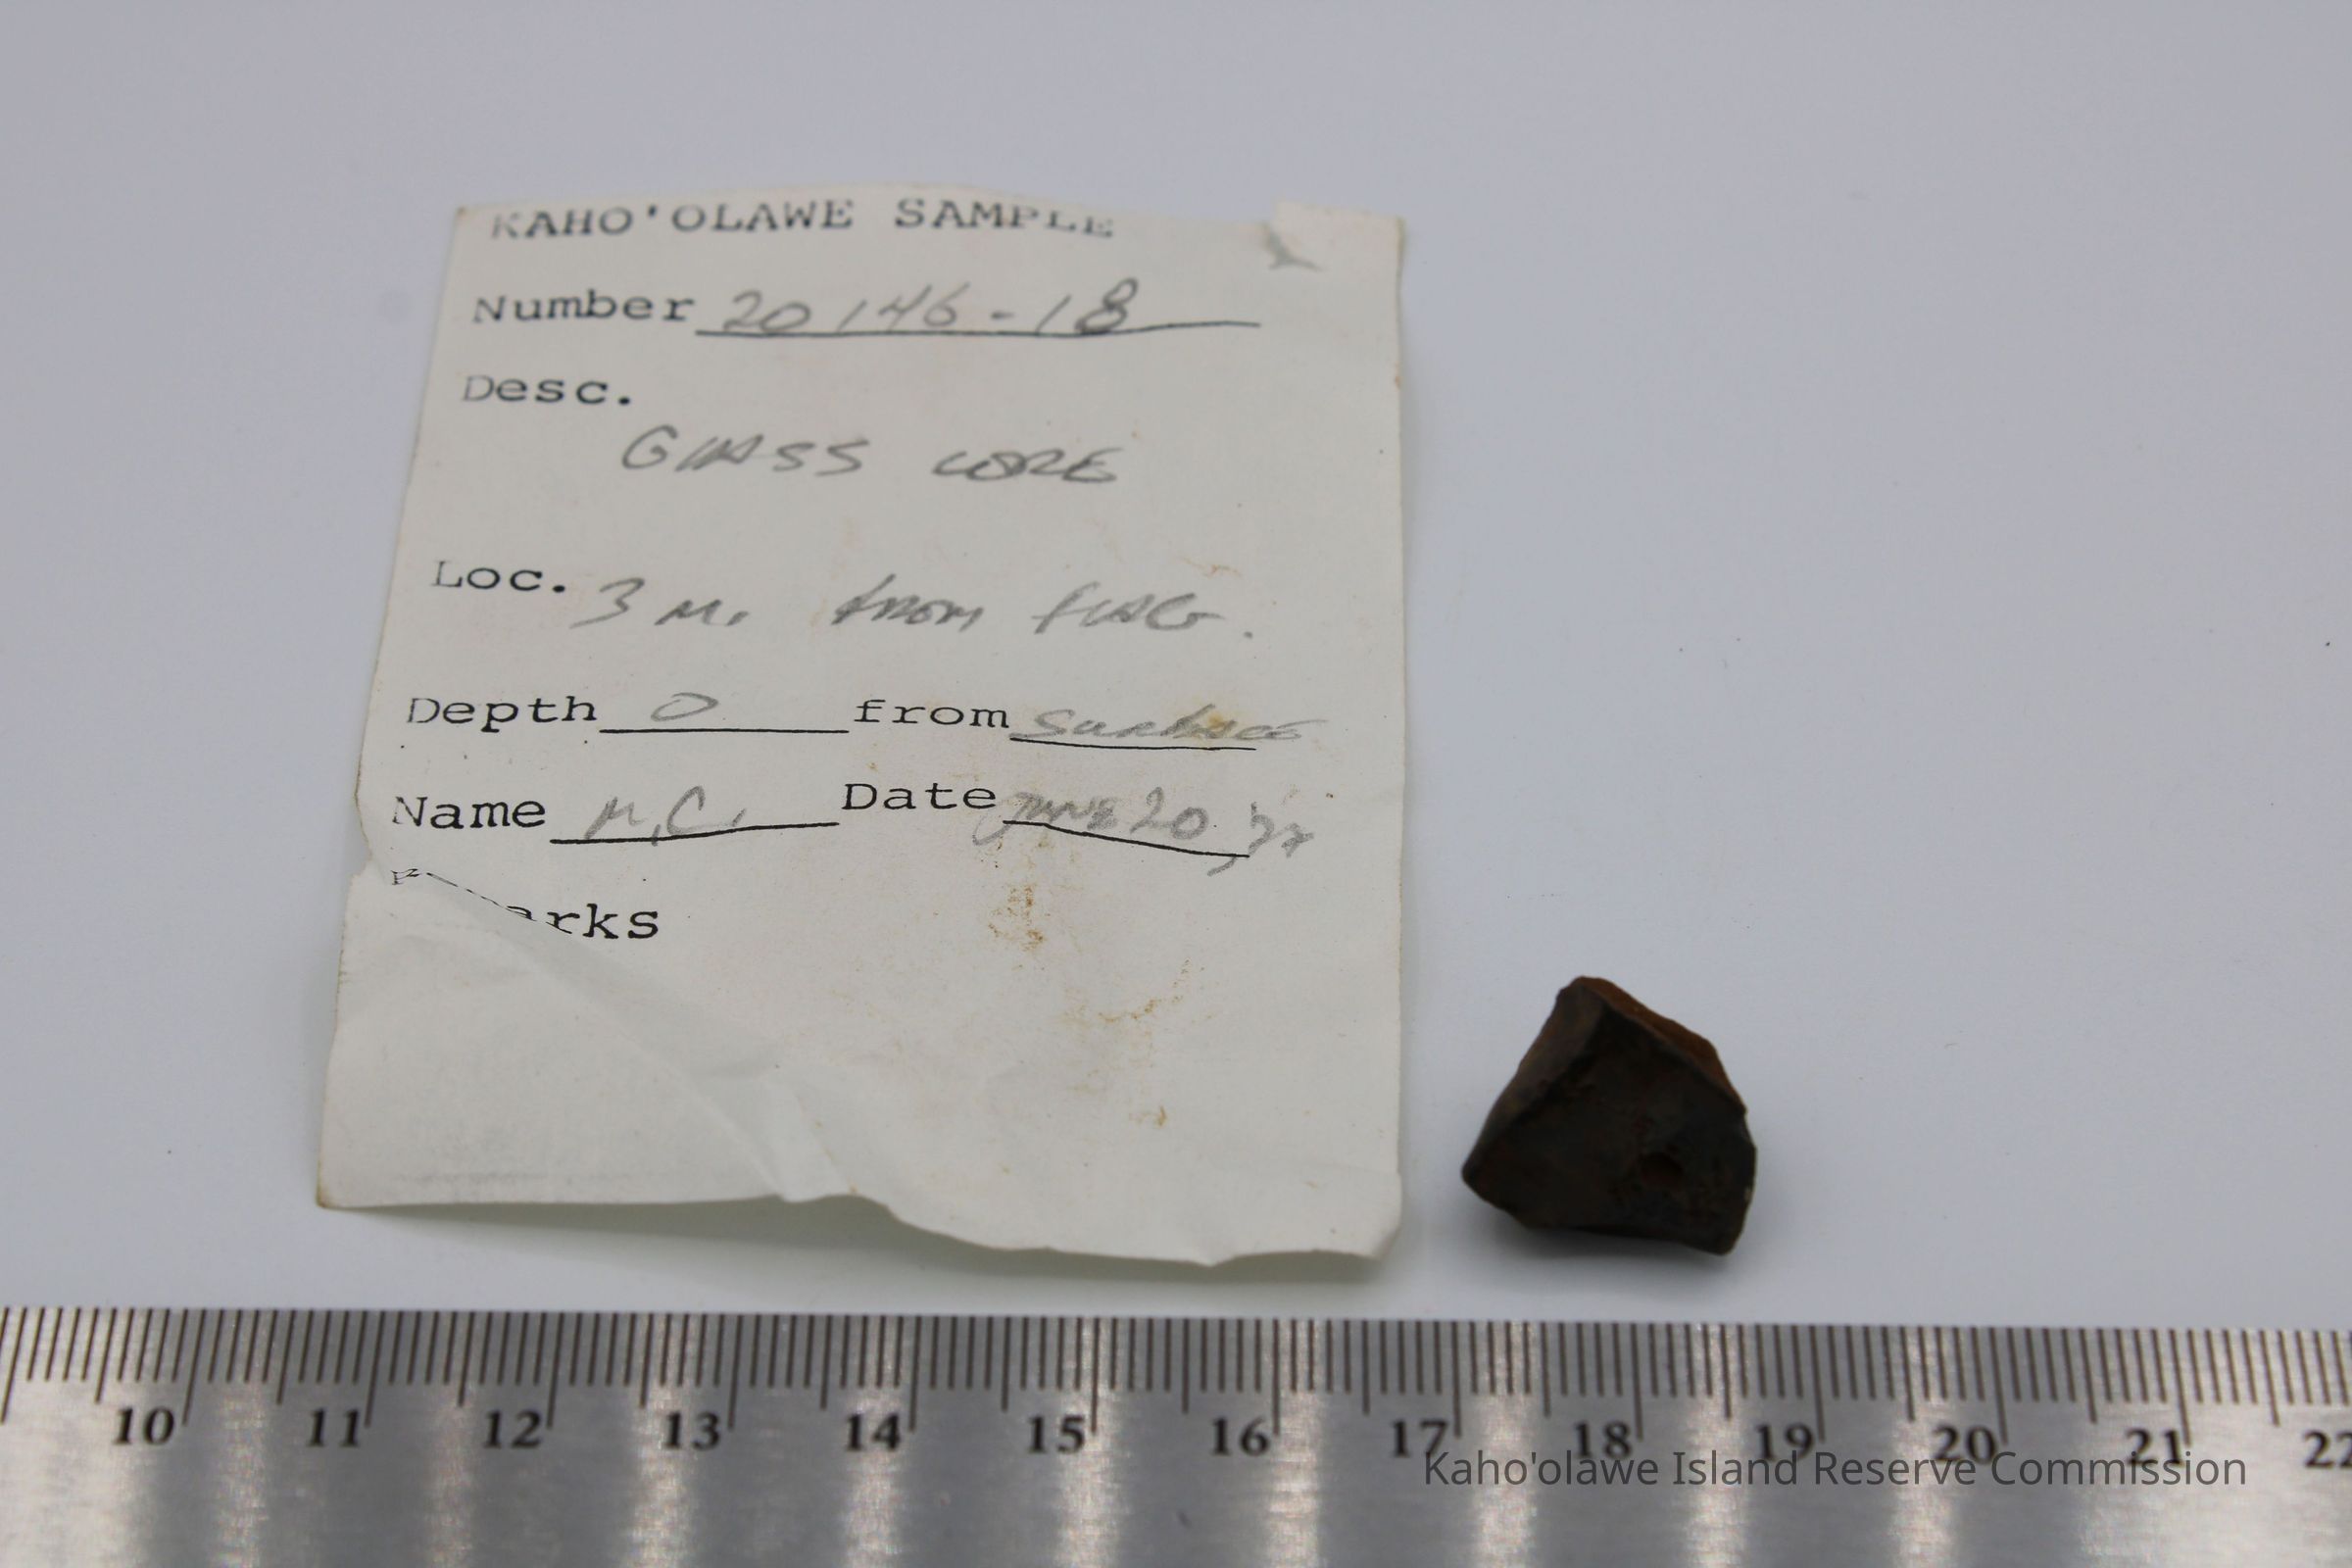 KAHO'OLAWE SAMPLE
Number 20146-18
Desc.
GLASS CORE
Loc. 3 M. from FLAG.
Depth 0 from SURFACE
Name M.C. Date JUNE 20,
arks
10 11 12 13 14 15 16 17 18 19 20 21 22
Kaho'olawe Island Reserve Commission